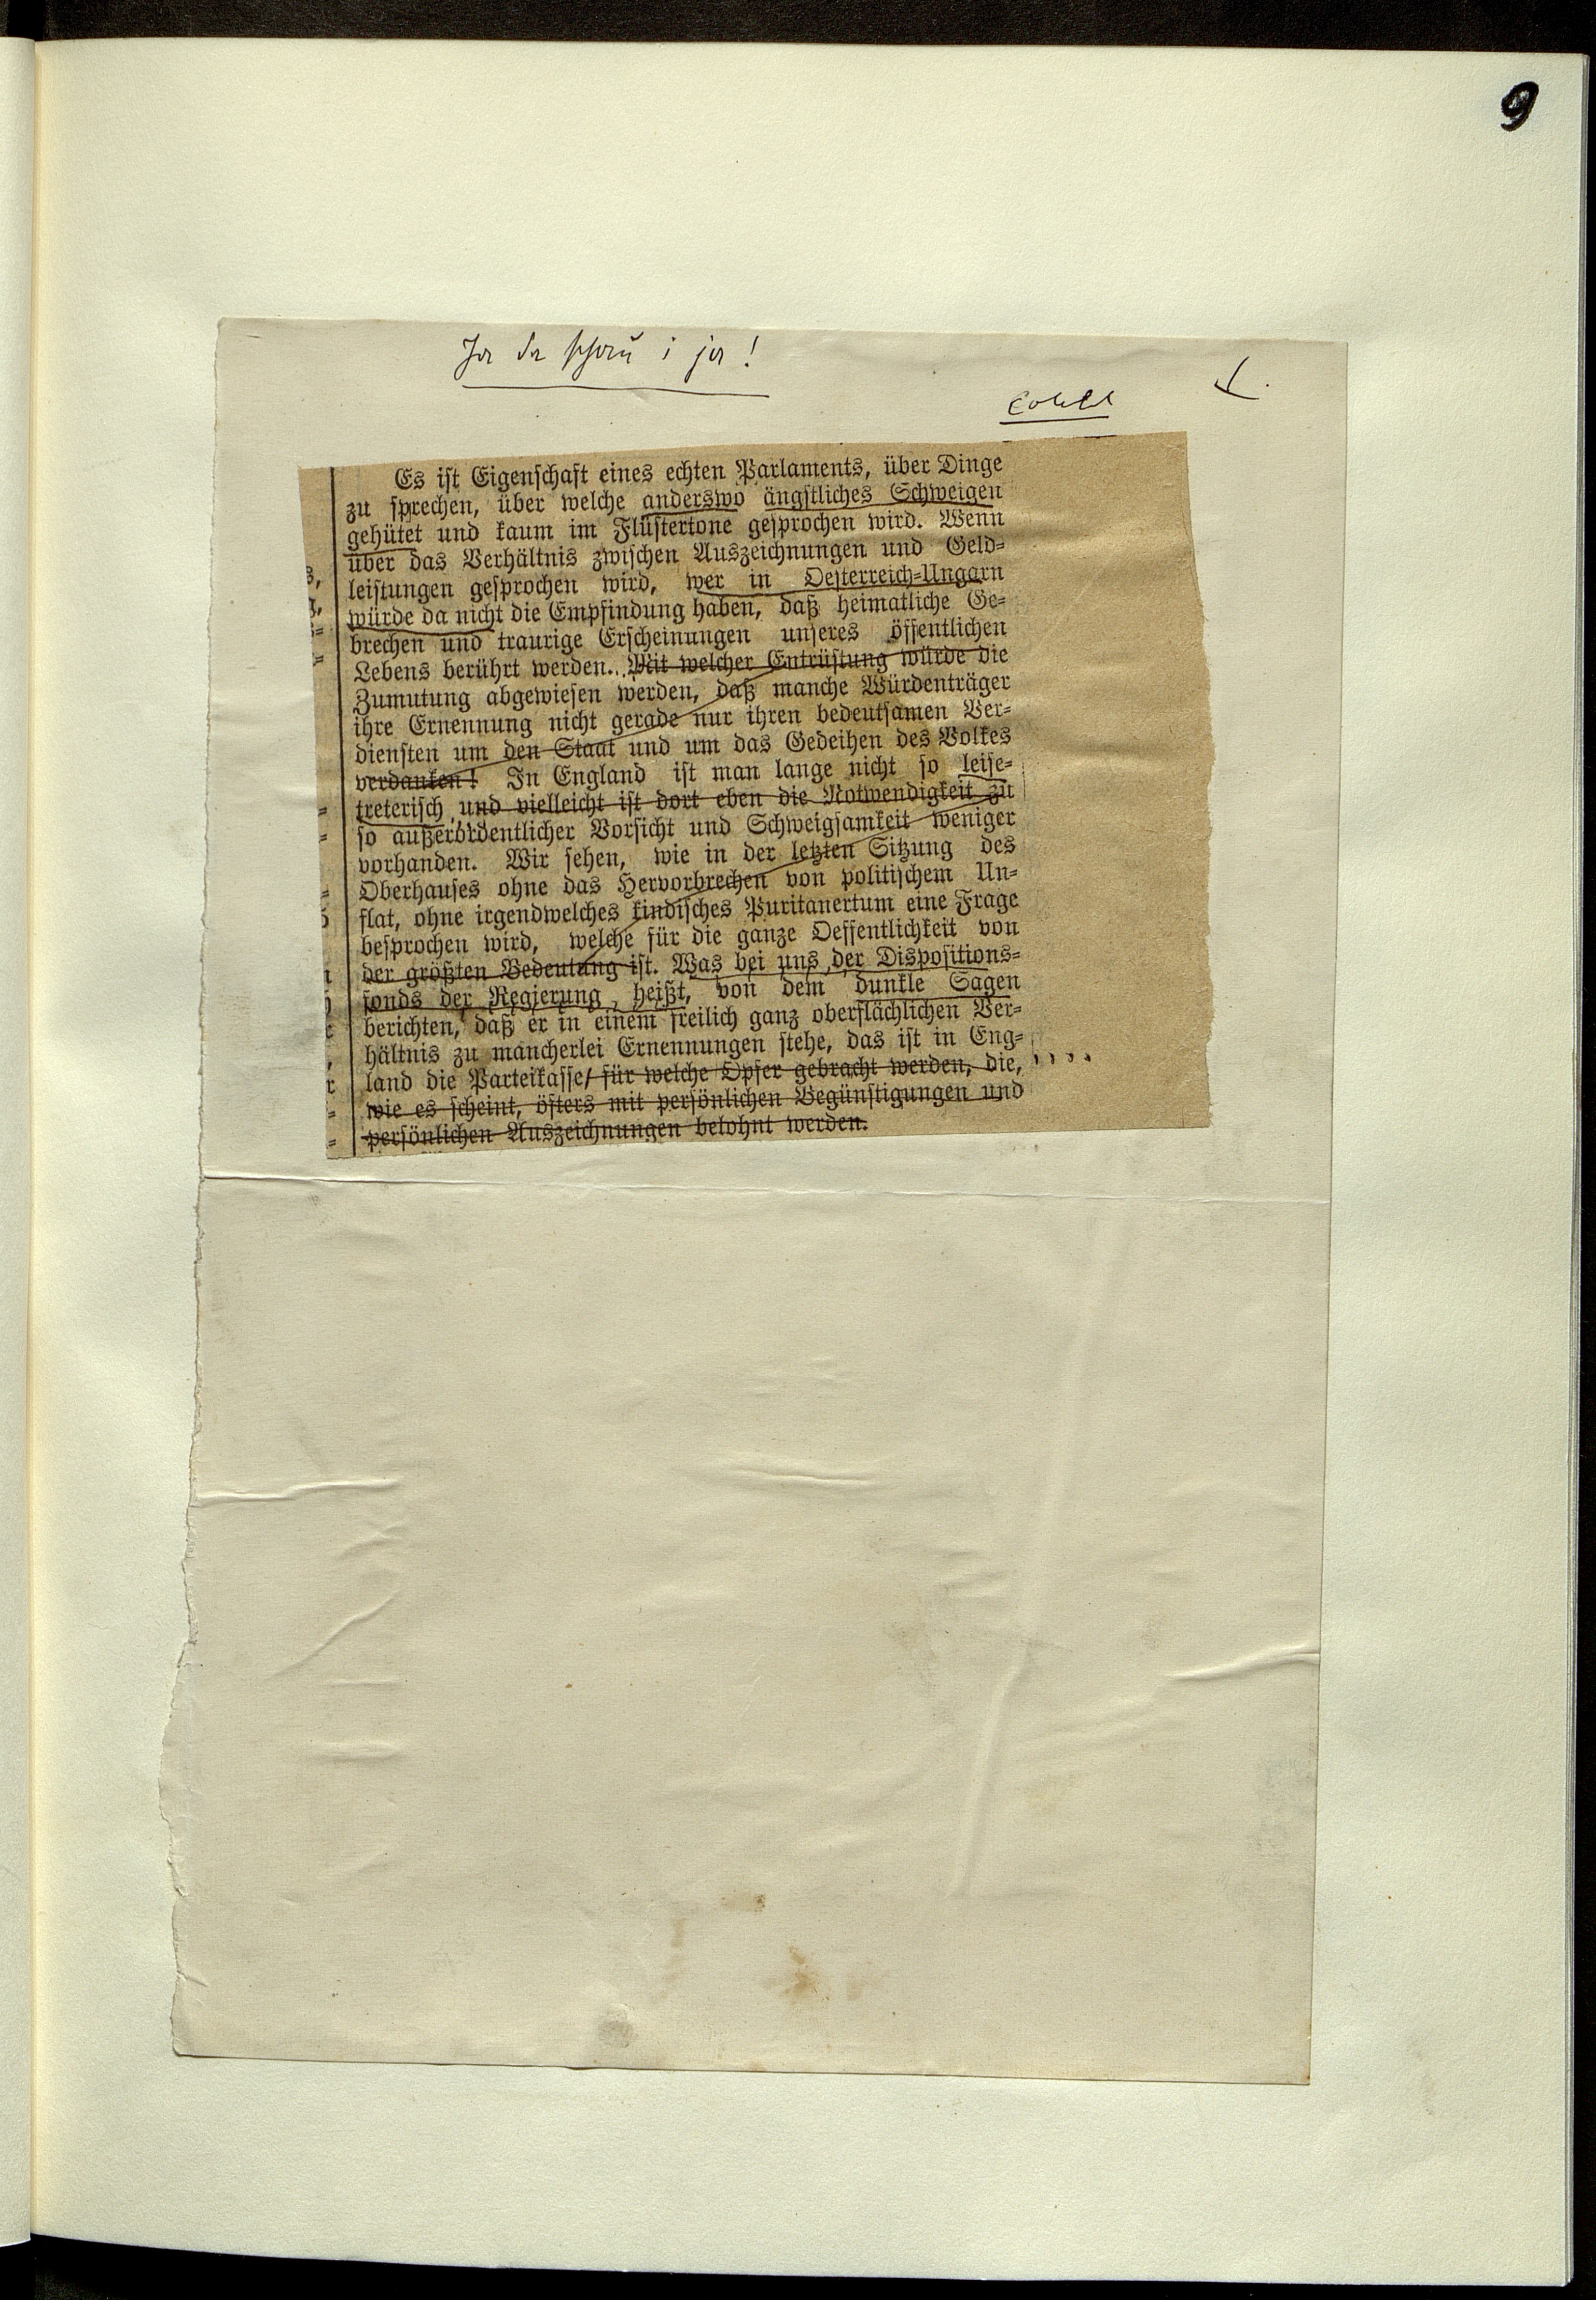 9
Ja da schau i ja!
Es ist Eigenschaft eines echten Parlaments, über Dinge
zu sprechen, über welche anderswo ängstliches Schweigen
gehütet und kaum im Flüstertone gesprochen wird. Wenn
über das Verhältnis zwischen Auszeichnungen und Geld-
leistungen gesprochen wird, wer in Oesterreich-Ungarn
würde da nicht die Empfindung haben, daß heimatliche Ge-
brechen und traurige Erscheinungen unseres öffentlichen
Lebens berührt werden... Mit welcher Entrüstung würde die
Zumutung abgewiesen werden, daß manche Würdenträger
ihre Ernennung nicht gerade nur ihren bedeutsamen Ver-
diensten um den Staat und um das Gedeihen des Volkes
verdanken! In England ist man lange nicht so leise-
treterisch und vielleicht ist dort eben die Notwendigkeit zu
so außerordentlicher Vorsicht und Schweigsamkeit weniger
vorhanden. Wir sehen, wie in der letzten Sitzung des
Oberhauses ohne das Hervorbrechen von politischem Un-
flat, ohne irgendwelches kindisches Puritanertum eine Frage
besprochen wird, welche für die ganze Oeffentlichkeit von
der größten Bedeutung ist. Was bei uns der Dispositions-
fonds der Regierung heißt, von dem dunkle Sagen
berichten, daß er in einem freilich ganz oberflächlichen Ver-
hältnis zu mancherlei Ernennungen stehe, das ist in Eng-
land die Parteikasse, für welche Opfer gebracht werden, die, ....
wie es scheint, öfters mit persönlichen Begünstigungen und
persönlichen Auszeichnungen belohnt werden.